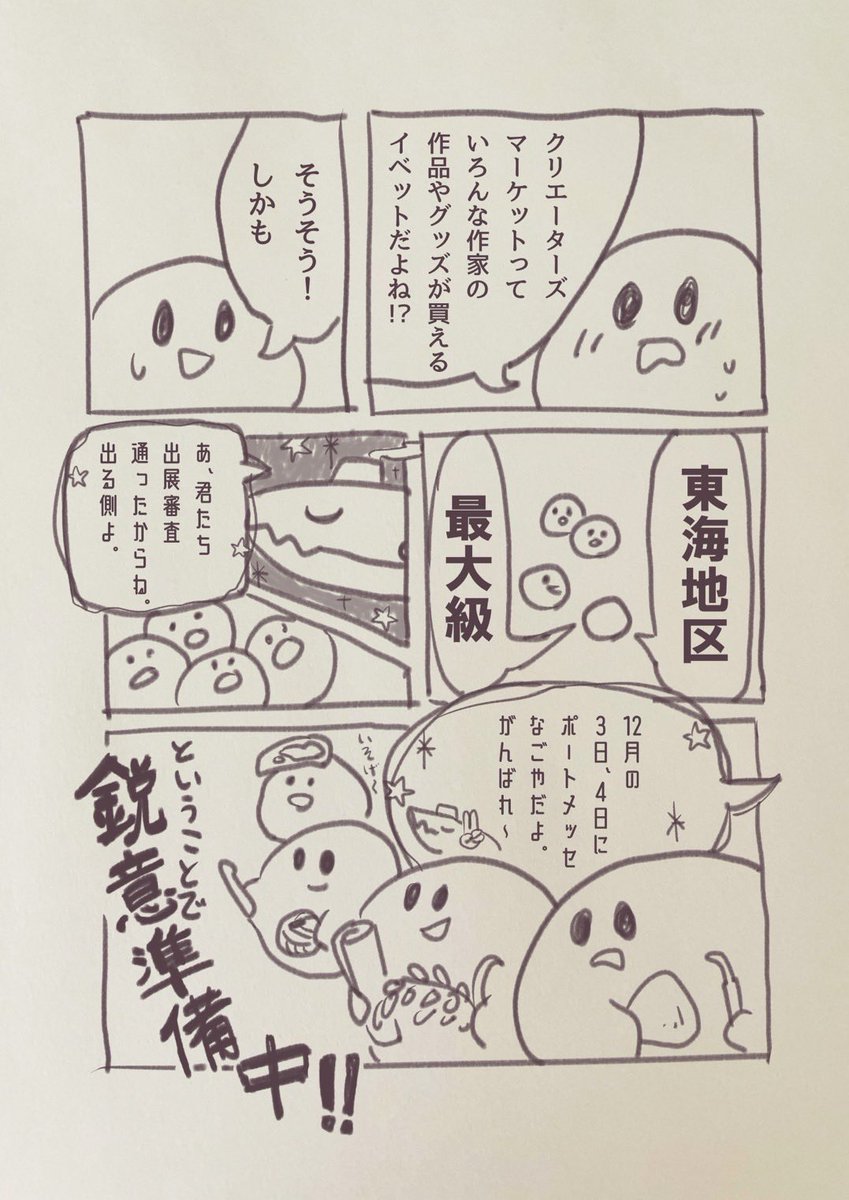 クリエーターズ
マーケットって
いろんな作家の
作品やグッズが買える
イベットだよね!?
そうそう!
しかも
東海地区
最大級
あ、君たち
出展審査
通ったからね。
出る側よ。
12月の
3日、4日に
ポートメッセ
なごやだよ。
がんばれ〜
いそげ〜
ということで
鋭意準備中!!